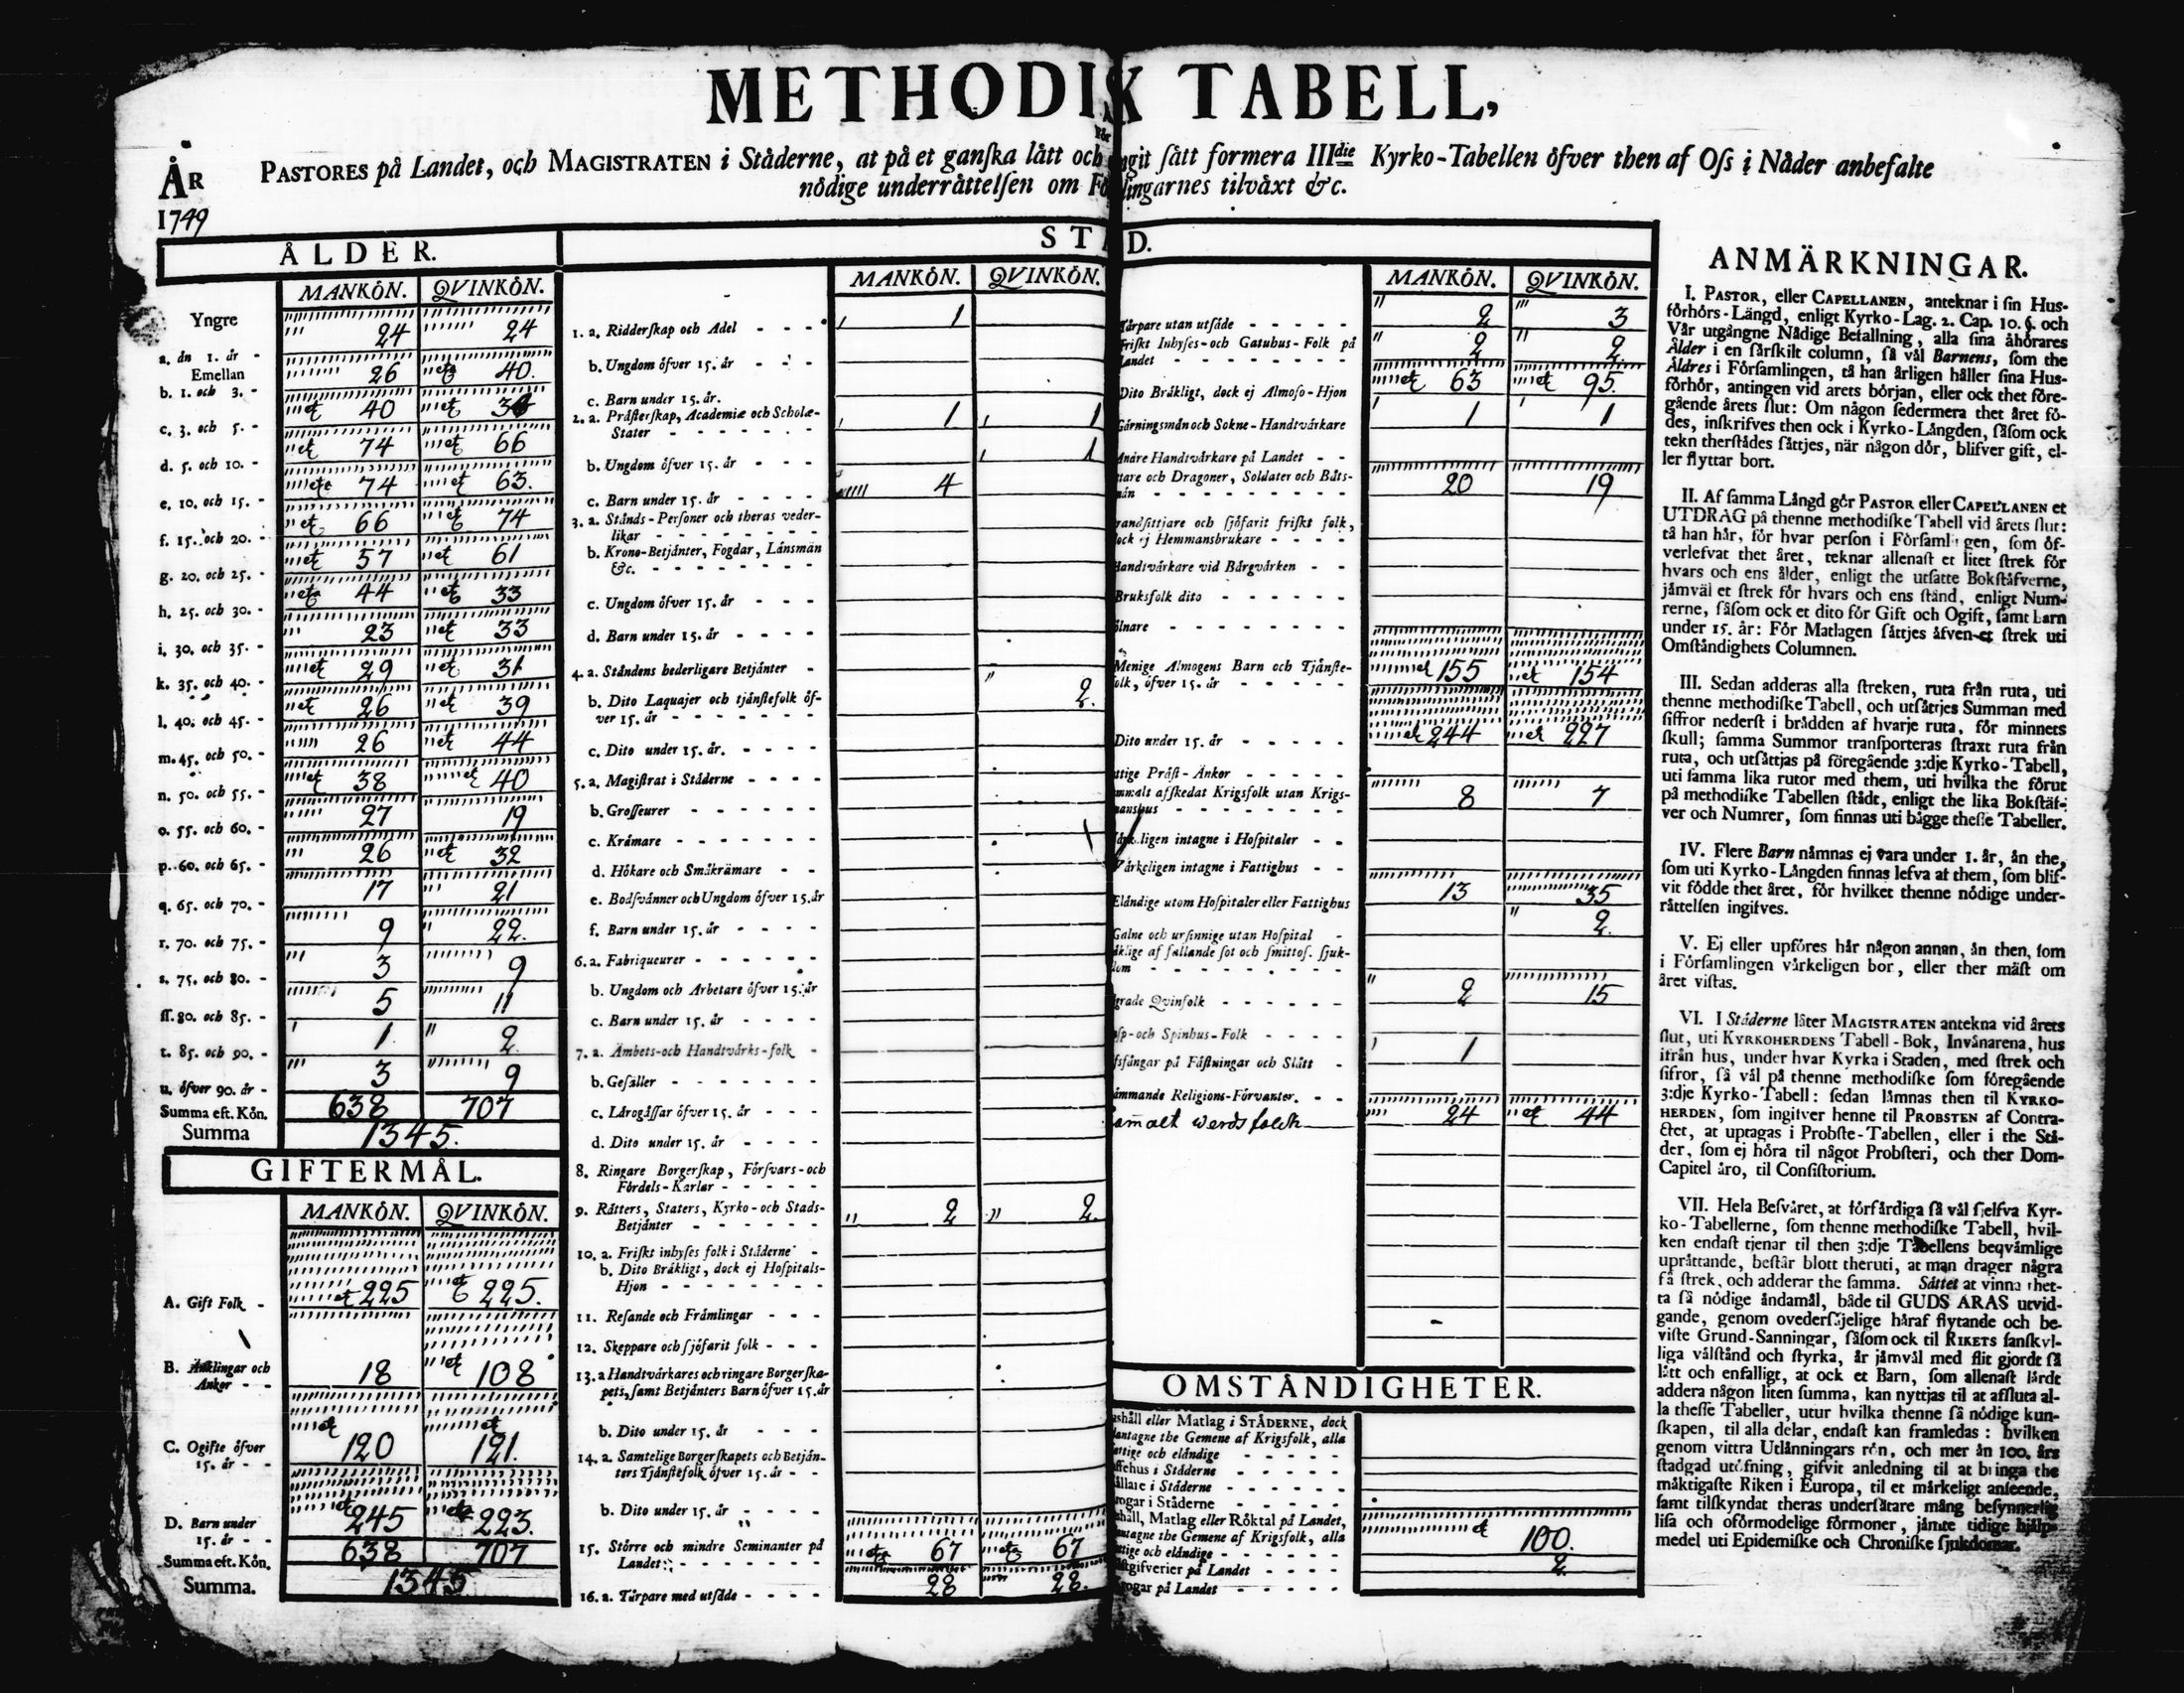 METHODISK TABELL,
ÅR PASTORES på Landet, och MAGISTRATEN i Ståderne, at på et ganſka lått och ſått formera IIIdie Kyrko-Tabellen ôfver then af Oſs i Nåder anbefalte
nôdige underråttelſen om Fôrſamlingarnes tilvåxt &c.
1749
ÅLDER.
MANKÔN. QVINKÔN.
Yngre 24 24
a. ån 1. år -
Emellan 26 40.
b. 1. och 3. -
40
c. 3. och 5. -
74 66
d. 5. och 10. -
74 63.
e. 10. och 15. -
66 74
f. 15. och 20. -
57 61
g. 20. och 25. -
44 33
h. 25. och 30. -
23 33
i. 30. och 35. -
29 31
k. 35. och 40. -
26 39
l. 40. och 45. -
26 44
m. 45. och 50. -
38 40
n. 50. och 55. -
27 19
o. 55. och 60. -
26 32
p. 60. och 65. -
17 21
q. 65. och 70. -
9 22.
r. 70. och 75. -
3 9
s. 75. och 80. -
5 11
ſſ. 80. och 85. -
1. 2
t. 85. och 90. -
3 9
u. ôfver 90. år -
Summa eft. Kôn. 638 707
Summa 1345.
GIFTERMÅL.
MANKÔN. QVINKÔN.
A. Gift Folk - 225 225.
B. Änklingar och Änkor - - 18 108
C. Ogifte ôfver 15. år - - 120 121.
D. Barn under 15. år - - 245 223.
Summa eft. Kôn. 638 707
Summa. 1345
STÅND.
MANKÔN. QVINKÔN.
1. a. Ridderſkap och Adel - - - 1
b. Ungdom ôfver 15. år - - -
c. Barn under 15. år.
2. a. Pråſterſkap, Academiæ och Scholæ-
Stater - - - - - - - 1 1
b. Ungdom ôfver 15. år - - - 1
c. Barn under 15. år - - - - 4
3. a. Stånds-Perſoner och theras veder-
likar - - - - - - -
b. Krono-Betjånter, Fogdar, Lånsmån
&c. - - - - - - - -
c. Ungdom ôfver 15. år - - -
d. Barn under 15. år - - - -
4. a. Ståndens hederligare Betjånter -
b. Dito Laquajer och tjånſtefolk ôf-
ver 15. år - - - - - - - 2.
c. Dito under 15. år. - - - -
5. a. Magiſtrat i Ståderne - - - -
b. Groſſeurer - - - - - -
c. Kråmare - - - - - - -
d. Hôkare och Småkråmare - -
e. Bodſvånner och Ungdom ôfver 15. år
f. Barn under 15. år - - - -
6. a. Fabriqueurer - - - - - -
b. Ungdom och Arbetare ôfver 15. år
c. Barn under 15. år - - - -
7. a. Åmbets-och Handtvårks-folk -
b. Geſåller - - - - - - -
c. Lårogåſſar ôfver 15. år - - -
d. Dito under 15. år - - - -
8. Ringare Borgerſkap, Fôrſvars-och
Fôrdels-Karlar - - - - -
9. Råtters, Staters, Kyrko-och Stads-
Betjånter - - - - - - 2 2.
10. a. Friſkt inhyſes folk i Ståderne -
b. Dito Bråkligt, dock ej Hoſpitals-
Hjon - - - - - - - -
11. Reſande och Fråmlingar - - -
12. Skeppare och ſjôfarit folk - - -
13. a Handtvårkares och ringare Borgerſka-
pets, ſamt Betjånters Barn ôfver 15. år
b. Dito under 15. år - - -
14. a. Samtelige Borgerſkapets och Betjån-
ters Tjånſtefolk ôfver 15. år - -
b. Dito under 15. år - - - -
15. Stôrre och mindre Seminanter på
Landet - - - - - - - 67 67
16. a. Tårpare med utſåde - - - - 28 28.
MANKÔN. QVINKÔN.
Tårpare utan utſåde - - - - - 2 3
Friſkt Inhyſes-och Gatuhus-Folk på
Landet - - - - - - - - 2 2.
Dito Bråkligt, dock ej Almoſo-Hjon 63 95.
Gårningsmån och Sokne-Handtvårkare 1 1
Andre Handtvårkare på Landet - -
Dragoner, Soldater och Båts- 20 19
och ſjôfarit friſkt folk,
Hemmansbrukare - - - -
Handtvårkare vid Bårgvårken - -
Bruksfolk dito - - - - - -
Menige Almogens Barn och Tjånſte-
folk, ôfver 15. år - - - - - 155 154
Dito under 15. år - - - - - 244 227
Pråſt-Änkor - - - - -
afſkedat Krigsfolk utan Krigs-
manshus - - - - - - - - 8 7
intagne i Hoſpitaler - -
Vårkeligen intagne i Fattighus - -
Elåndige utom Hoſpitaler eller Fattighus 13 35
Galne och urſinnige utan Hoſpital - 2.
af fallande ſot och ſmittoſ. ſjuk-
dom - - - - - - - -
Qvinfolk - - - - - - 2 15
och Spinhus-Folk - - - -
på Fåſtningar och Slått - 1
Religions-Fôrvanter. - -
24 44
OMSTÅNDIGHETER.
eller Matlag i STÅDERNE, dock
the Gemene af Krigsfolk, alla
och elåndige - - - - -
i Ståderne - - - - -
i Ståderne - - - - - -
i Ståderne - - - - -
Matlag eller Rôktal på Landet,
the Gemene af Krigsfolk, alla
och elåndige - - - - - - 100.
på Landet - - - - 2
på Landet - - - - -
ANMÄRKNINGAR.
I. PASTOR, eller CAPELLANEN, anteknar i ſin Hus-
fôrhôrs-Långd, enligt Kyrko-Lag. 2. Cap. 10. §. och
Vår utgångne Nådige Befallning, alla ſina åhôrares
Ålder i en ſårſkilt column, ſå vål Barnens, ſom the
Åldres i Fôrſamlingen, tå han årligen håller ſina Hus-
fôrhôr, antingen vid arets bôrjan, eller ock thet fôre-
gående årets ſlut: Om någon ſedermera thet året fô-
des, inſkrifves then ock i Kyrko-Långden, ſåſom ock
tekn therſtådes ſåttjes, når någon dôr, blifver gift, el-
ler flyttar bort.
II. Af ſamma Långd gôr PASTOR eller CAPELLANEN et
UTDRAG på thenne methodiſke Tabell vid årets ſlut:
tå han hår, fôr hvar perſon i Fôrſamlingen, ſom ôf-
verlefvat thet året, teknar allenaſt et litet ſtrek fôr
hvars och ens ålder, enligt the utſatte Bokſtåfverne,
jåmvål et ſtrek fôr hvars och ens ſtånd, enligt Num-
rerne, ſåſom ock et dito fôr Gift och Ogift, ſamt barn
under 15. år: Fôr Matlagen ſåttjes åfven et ſtrek uti
Omſtåndighets Columnen.
III. Sedan adderas alla ſtreken, ruta från ruta, uti
thenne methodiſke Tabell, och utſåttjes Summan med
ſiffror nederſt i brådden af hvarje ruta, fôr minnets
ſkull; ſamma Summor tranſporteras ſtraxt ruta från
ruta, och utſåttjas på fôregående 3:dje Kyrko-Tabell,
uti ſamma lika rutor med them, uti hvilka the fôrut
på methodiſke Tabellen ſtådt, enligt the lika Bokſtåf-
ver och Numrer, ſom finnas uti bågge theſſe Tabeller.
IV. Flere Barn nåmnas ej vara under 1. år, ån the,
ſom uti Kyrko-Långden finnas lefva af them, ſom blif-
vit fôdde thet året, fôr hvilket thenne nôdige under-
råttelſen ingifves.
V. Ej eller upfôres hår någon annan, ån then, ſom
i Fôrſamlingen vårkeligen bor, eller ther måſt om
året viſtas.
VI. I Ståderne låter MAGISTRATEN antekna vid årets
ſlut, uti KYRKOHERDENS Tabell-Bok, Invånarena, hus
ifrån hus, under hvar Kyrka i Staden, med ſtrek och
ſifror, ſå vål på thenne methodiſke ſom fôregående
3:dje Kyrko-Tabell: ſedan låmnas then til KYRKO-
HERDEN, ſom ingifver henne til PROBSTEN af Contra-
ctet, at uptagas i Probſte-Tabellen, eller i the Ståder,
der, ſom ej hôra til något Probſteri, och ther Dom-
Capitel åro, til Conſiſtorium.
VII. Hela Beſvåret, at fôrfårdiga ſå vål ſjelfva Kyr-
ko-Tabellerne, ſom thenne methodiſke Tabell, hvil-
ken endaſt tjenar til then 3:dje Tabellens beqvåmlige
upråttande, beſtår blott theruti, at man drager några
få ſtrek, och adderar the ſamma. Såttet at vinna thet-
ta ſå nôdige åndamål, både til GUDS ÄRAS utvid-
gande, genom ovederſåjelige håraf flytande och be-
viſte Grund-Sanningar, ſåſom ock til RIKETS ſanſkyl-
liga vålſtånd och ſtyrka, år jåmvål med flit gjordt ſå
lått och enfalligt, at ock et Barn, ſom allenaſt lårdt
addera någon liten ſumma, kan nyttjas til at afſluta al-
la theſſe Tabeller, utur hvilka thenne ſå nôdige kun-
ſkapen, til alla delar, endaſt kan framledas: hvilken
genom vittra Utlånningars rôn, och mer ån 100. års
ſtadgad utôfning, gifvit anledning til at bringa the
måktigaſte Riken i Europa, til et mårkeligt anſeende,
ſamt tilſkyndat theras underſåtare mång beſynnerlig
liſa och ofôrmodelige fôrmoner, jåmte tidige hjålp-
medel uti Epidemiſke och Chroniſke ſjukdomar.